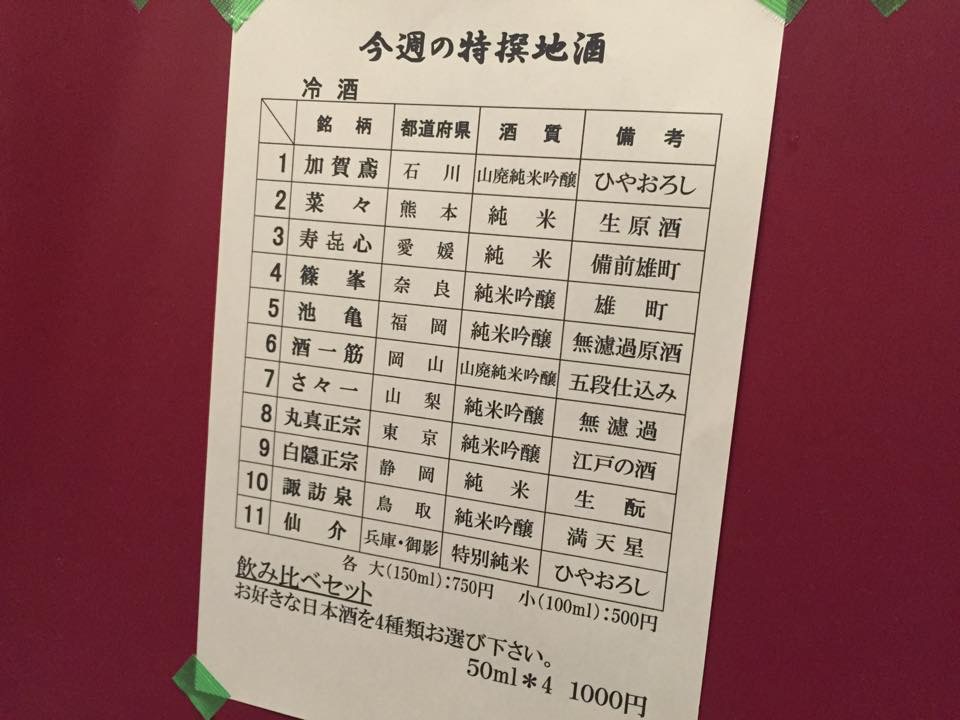 今週の特撰地酒
冷酒
銘柄 都道府県 酒質 備考
1 加賀鳶 石川 山廃純米吟醸 ひやおろし
2 菜々 熊本 純米 生原酒
3 寿㐂心 愛媛 純米 備前雄町
4 篠峯 奈良 純米吟醸 雄町
5 池亀 福岡 純米吟醸 無濾過原酒
6 酒一筋 岡山 山廃純米吟醸 五段仕込み
7 さ々一 山梨 純米吟醸 無濾過
8 丸真正宗 東京 純米吟醸 江戸の酒
9 白隠正宗 静岡 純米 生酛
10 諏訪泉 鳥取 純米吟醸 満天星
11 仙介 兵庫・御影 特別純米 ひやおろし
各 大(150ml):750円 小(100ml):500円
飲み比べセット
お好きな日本酒を4種類お選び下さい。
50ml*4 1000円